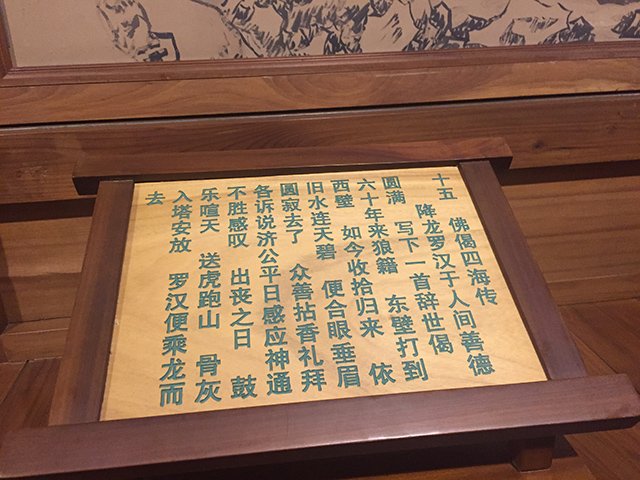 十五 佛偈四海传
降龙罗汉于人间善德
圆满 写下一首辞世偈
六十年来狼籍 东壁打到
西壁 如今收拾归来 依
旧水连天碧 便合眼垂眉
圆寂去了 众善拈香礼拜
各诉说济公平日感应神通
不胜感叹 出丧之日 鼓
乐喧天 送虎跑山 骨灰
入塔安放 罗汉便乘龙而
去